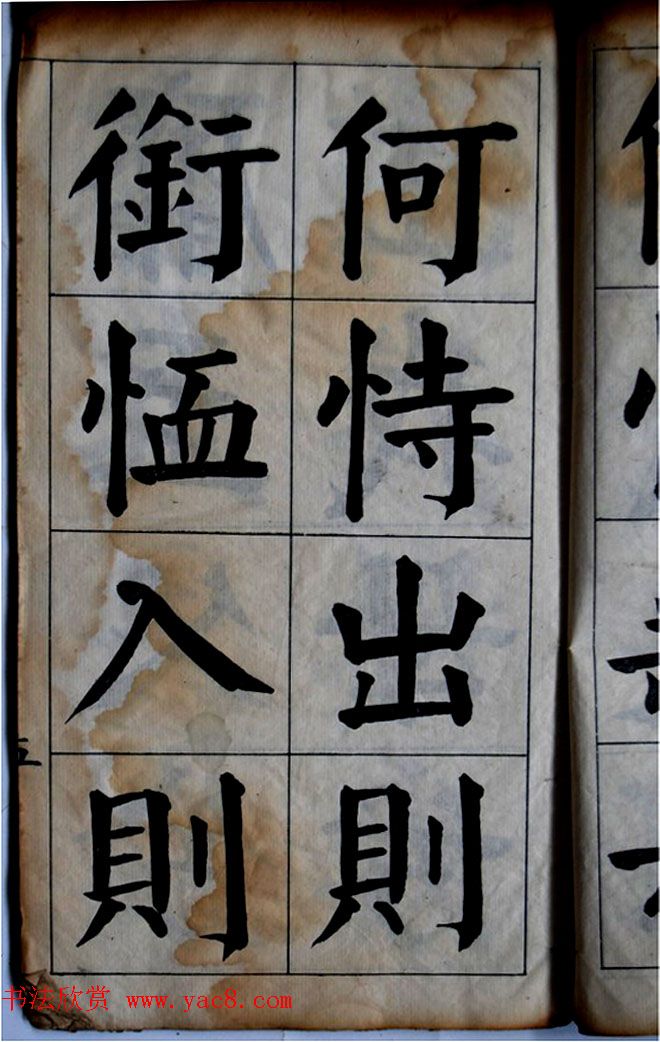 何恃出則
銜恤入則
五
书法欣赏 www.yac8.com